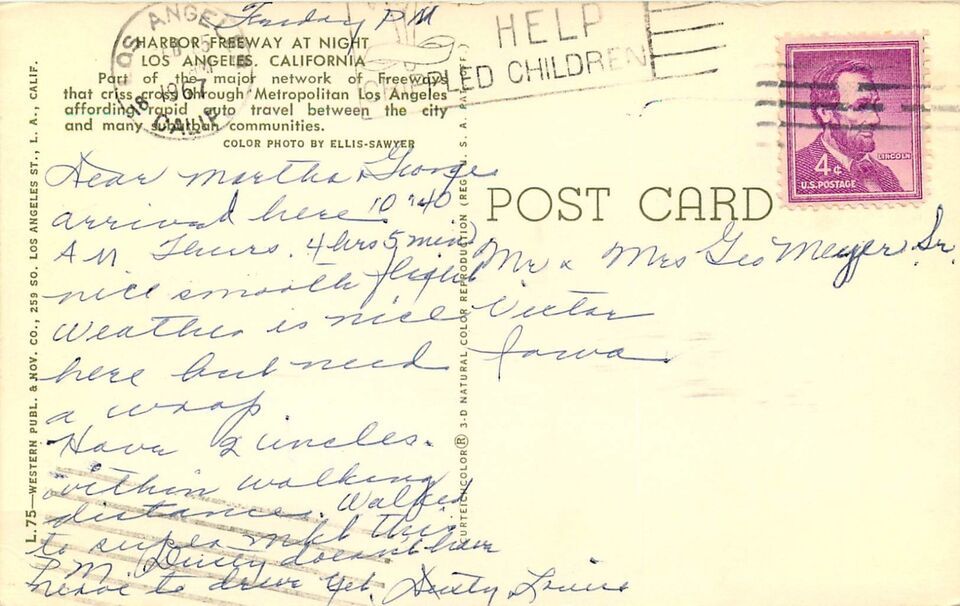 Friday PM
LOS ANGELES
CALIF
1967
HELP
CRIPPLED CHILDREN
HARBOR FREEWAY AT NIGHT
LOS ANGELES, CALIFORNIA
Part of the major network of Freeways
that criss cross through Metropolitan Los Angeles
affording rapid auto travel between the city
and many suburban communities.
COLOR PHOTO BY ELLIS-SAWYER
Dear Martha & George
arrived here 10:40
AM Thurs. 4 hrs 5 min
nice smooth flight
Weather is nice
here but need
a wrap
Have 2 uncles
within walking
distance. Walked
to super mkt this
P.M. doesn't have
to drive yet.
L.75—WESTERN PUBL. & NOV. CO., 259 SO. LOS ANGELES ST., L. A., CALIF.
CURTEICHCOLOR® 3-D NATURAL COLOR REPRODUCTION (REG. U. S. A. PAT. OFF.)
POST CARD
4¢
LINCOLN
U.S. POSTAGE
Mr & Mrs Geo Meyer Sr.
Victor
Iowa